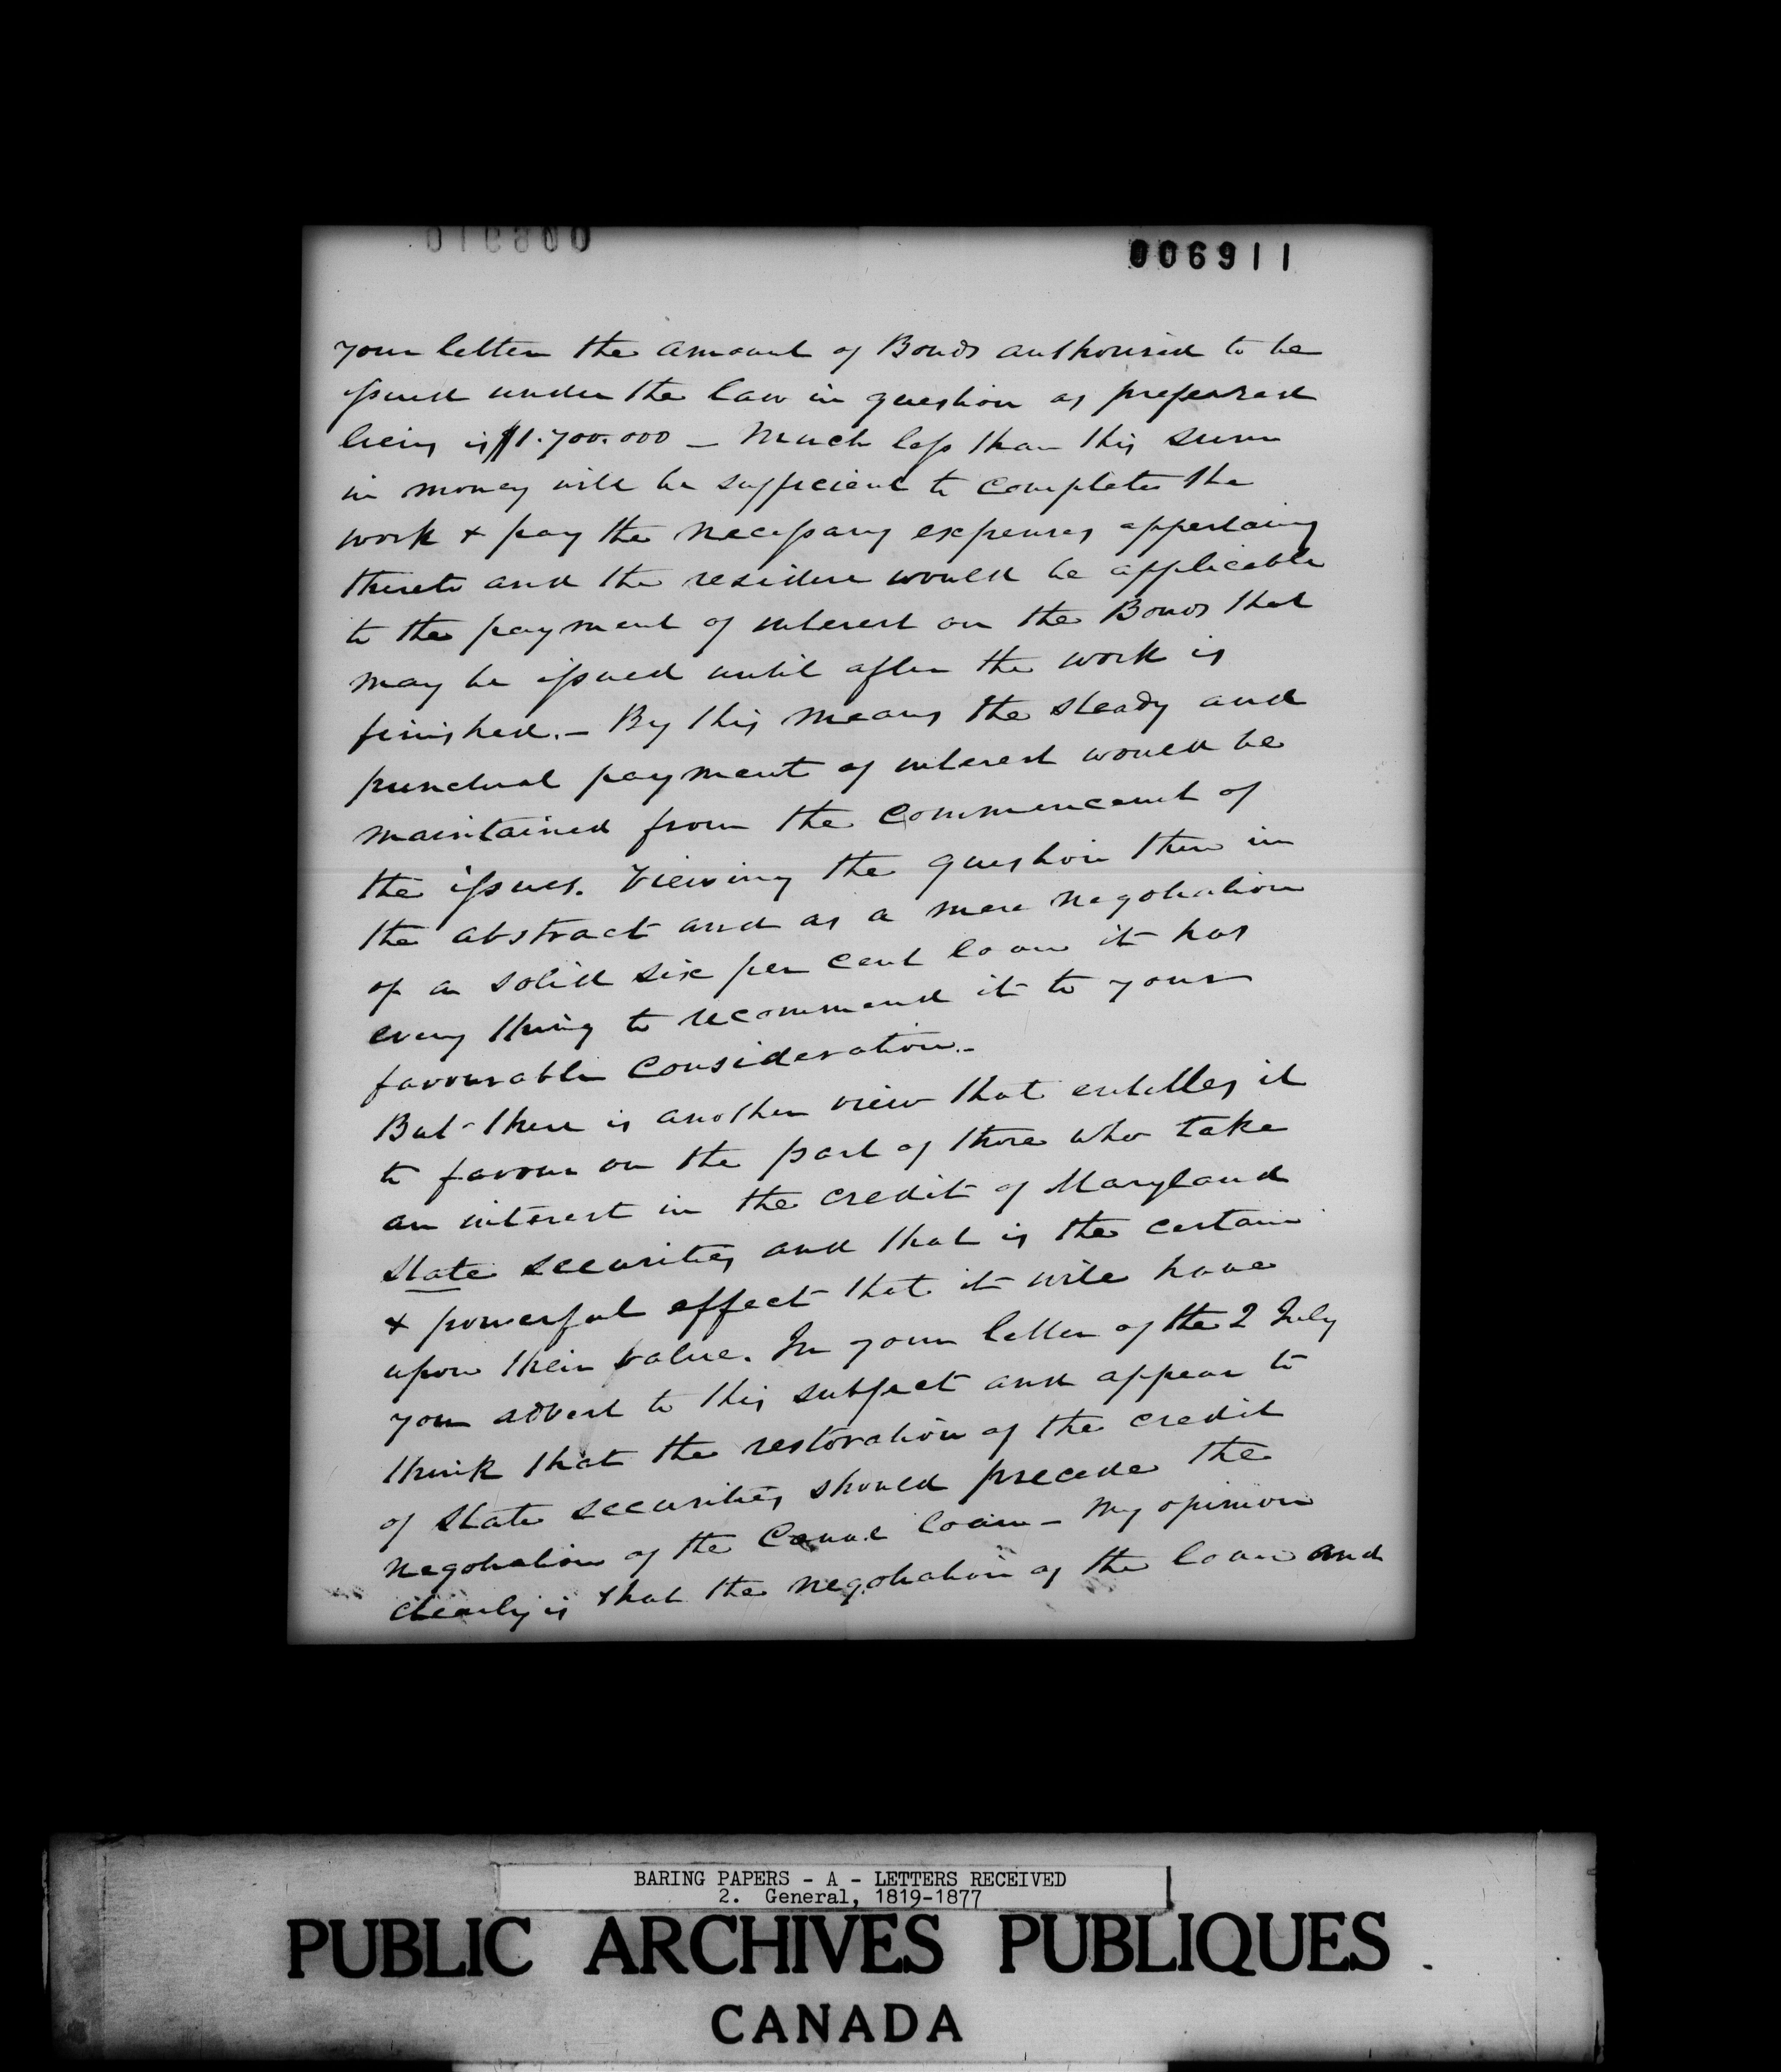 006911
your letter the amount of Bonds authorised to be
issued under the law in question as preferred
liens is $1.700.000 – Much less than this sum
in money will be sufficient to complete the
work & pay the necessary expenses appertaing
thereto and the residue would be applicable
to the payment of interest on the Bonds that
may be issued until after the work is
finished. – By this means the steady and
punctual payment of interest would be
maintained from the commencement of
the issues. Viewing the question then in
the abstract and as a mere negotiation
of a solid six per cent loan it has
every thing to recommend it to your
favourable consideration. –
But there is another view that entitles it
to favour on the part of those who take
an interest in the credit of Maryland
State securities and that is the certain
& powerful effect that it will have
upon their value. In your letter of the 2 July
you advert to this subject and appear to
think that the restoration of the credit
of State securities should precede the
negotiation of the Canal loan – My opinion
clearly is that the negotiation of the loan and
BARING PAPERS - A - LETTERS RECEIVED
2. General, 1819-1877
PUBLIC ARCHIVES PUBLIQUES
CANADA